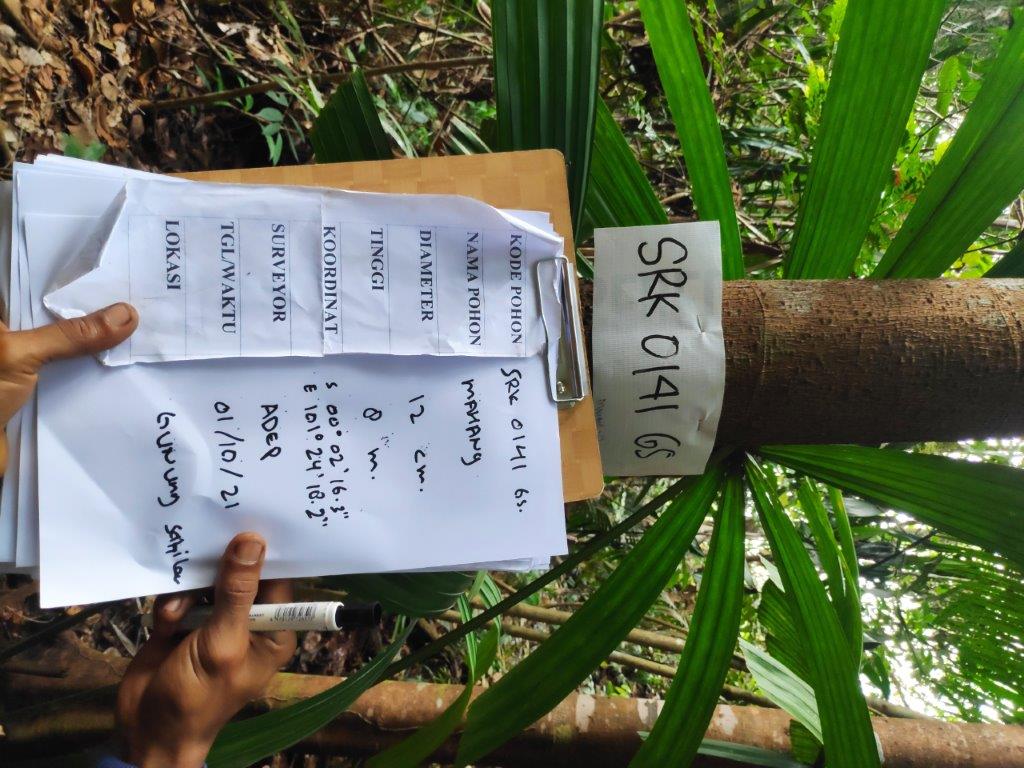 SRK 0141 GS
KODE POHON SRK 0141 GS.
NAMA POHON MAHANG
DIAMETER 12 cm.
TINGGI 8 m.
KOORDINAT S 00° 02' 16.3"
E 101° 24' 18.2"
SURVEYOR ADEP
TGL/WAKTU 01/10/21
LOKASI GUNUNG Sahilan